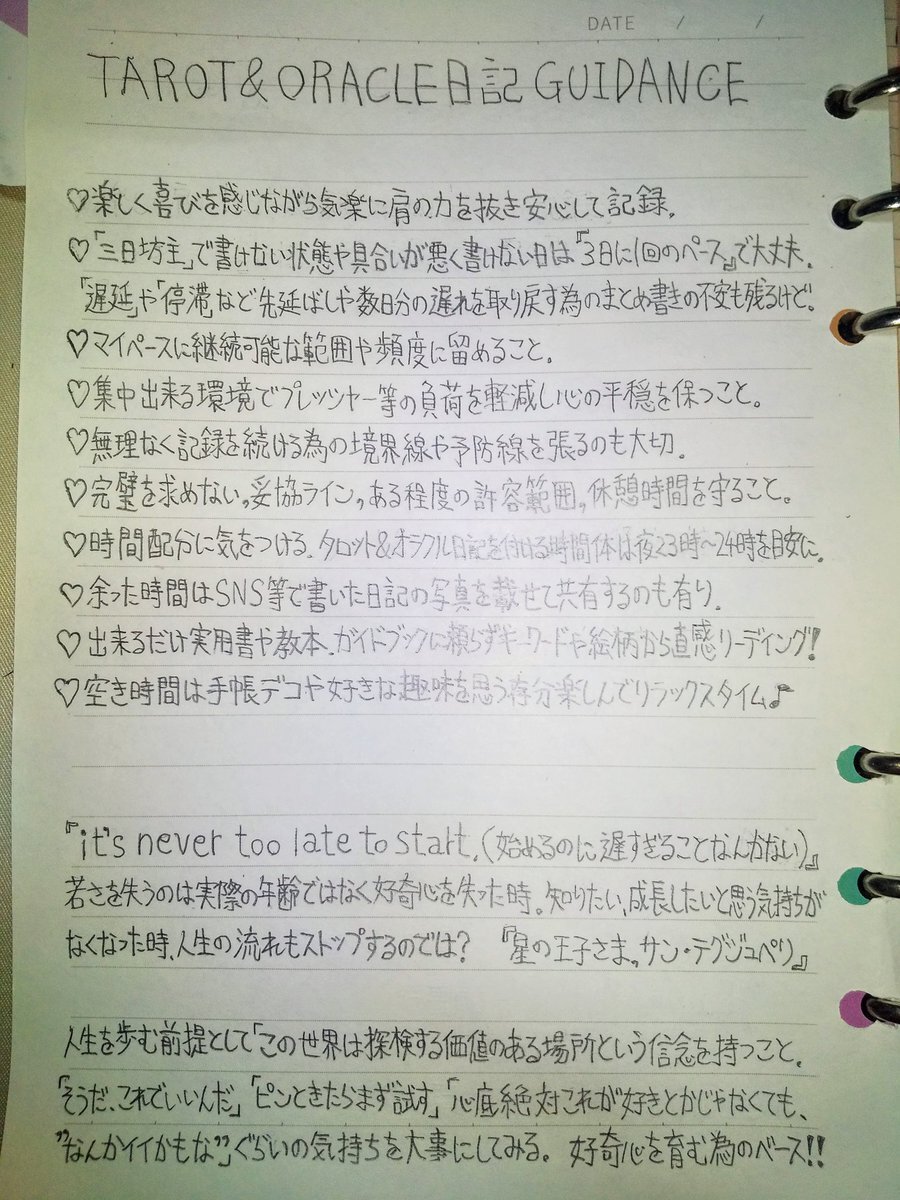 DATE / /
TAROT&ORACLE日記 GUIDANCE
♡楽しく喜びを感じながら気楽に肩の力を抜き安心して記録.
♡「三日坊主」で書けない状態や具合いが悪く書けない日は『3日に1回のペース』で大丈夫.
「遅延」や「停滞」など先延ばしや数日分の遅れを取り戻す為のまとめ書きの不安も残るけど.
♡マイペースに継続可能な範囲や頻度に留めること。
♡集中出来る環境でプレッシャー等の負荷を軽減し心の平穏を保つこと。
♡無理なく記録を続ける為の境界線や予防線を張るのも大切.
♡完璧を求めない〟妥協ライン〟ある程度の許容範囲〟休憩時間を守ること。
♡時間配分に気をつける.タロット&オラクル日記を付ける時間体は夜23時〜24時を目安に.
♡余った時間はSNS等で書いた日記の写真を載せて共有するのも有り.
♡出来るだけ実用書や教本、ガイドブックに頼らずキーワードや絵柄から直感リーディング!
♡空き時間は手帳デコや好きな趣味を思う存分楽しんでリラックスタイム♪
『it's never too late to start.(始めるのに遅すぎることなんかない)』
若さを失うのは実際の年齢ではなく好奇心を失った時。知りたい、成長したいと思う気持ちが
なくなった時、人生の流れもストップするのでは? 『星の王子さま〟サン・テグジュペリ』
人生を歩む前提として「この世界は探検する価値のある場所という信念を持つこと.
「そうだ、これでいいんだ」「ピンときたらまず試す」「心底絶対これが好きとかじゃなくても、
〝なんかイイかもな〟」ぐらいの気持ちを大事にしてみる。 好奇心を育む為のベース!!